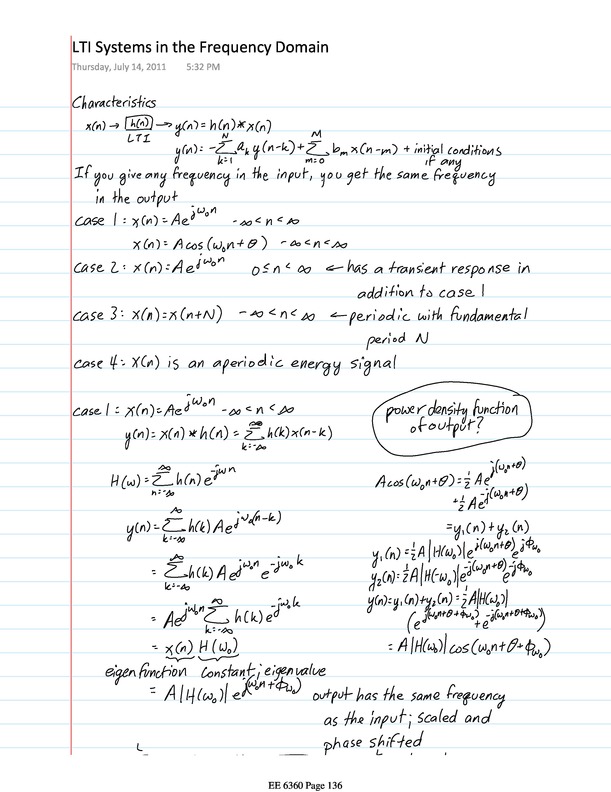 LTI Systems in the Frequency Domain
Thursday, July 14, 2011 5:32 PM
Characteristics
x(n) → h(n) → y(n) = h(n) * x(n)
LTI
y(n) = -∑_{k=1}^{N} a_k y(n-k) + ∑_{m=0}^{M} b_m x(n-m) + initial conditions
if any
If you give any frequency in the input, you get the same frequency
in the output
case 1: x(n) = Ae^{jω₀n} -∞<n<∞
x(n) = A cos(ω₀n+θ) -∞<n<∞
case 2: x(n) = Ae^{jω₀n} 0≤n<∞ ← has a transient response in
addition to case 1
case 3: x(n) = x(n+N) -∞<n<∞ ← periodic with fundamental
period N
case 4: x(n) is an aperiodic energy signal
case 1: x(n) = Ae^{jω₀n} -∞<n<∞
y(n) = x(n) * h(n) = ∑_{k=-∞}^{∞} h(k) x(n-k)
power density function
of output?
H(ω) = ∑_{n=-∞}^{∞} h(n) e^{-jωn}
y(n) = ∑_{k=-∞}^{∞} h(k) Ae^{jω₀(n-k)}
= ∑_{k=-∞}^{∞} h(k) A e^{jω₀n} e^{-jω₀k}
= Ae^{jω₀n} ∑_{k=-∞}^{∞} h(k) e^{-jω₀k}
= x(n) H(ω₀)
eigenfunction constant; eigenvalue
= A|H(ω₀)| e^{j(ω₀n+ϕ_{ω₀})} output has the same frequency
as the input; scaled and
phase shifted
A cos(ω₀n+θ) = ½ Ae^{j(ω₀n+θ)}
+ ½ Ae^{-j(ω₀n+θ)}
= y₁(n) + y₂(n)
y₁(n) = ½ A|H(ω₀)| e^{j(ω₀n+θ)} e^{jϕ_{ω₀}}
y₂(n) = ½ A|H(-ω₀)| e^{-j(ω₀n+θ)} e^{-jϕ_{ω₀}}
y(n) = y₁(n) + y₂(n) = ½ A|H(ω₀)|
(e^{j(ω₀n+θ+ϕ_{ω₀})} + e^{-j(ω₀n+θ+ϕ_{ω₀})})
= A|H(ω₀)| cos(ω₀n+θ+ϕ_{ω₀})
EE 6360 Page 136